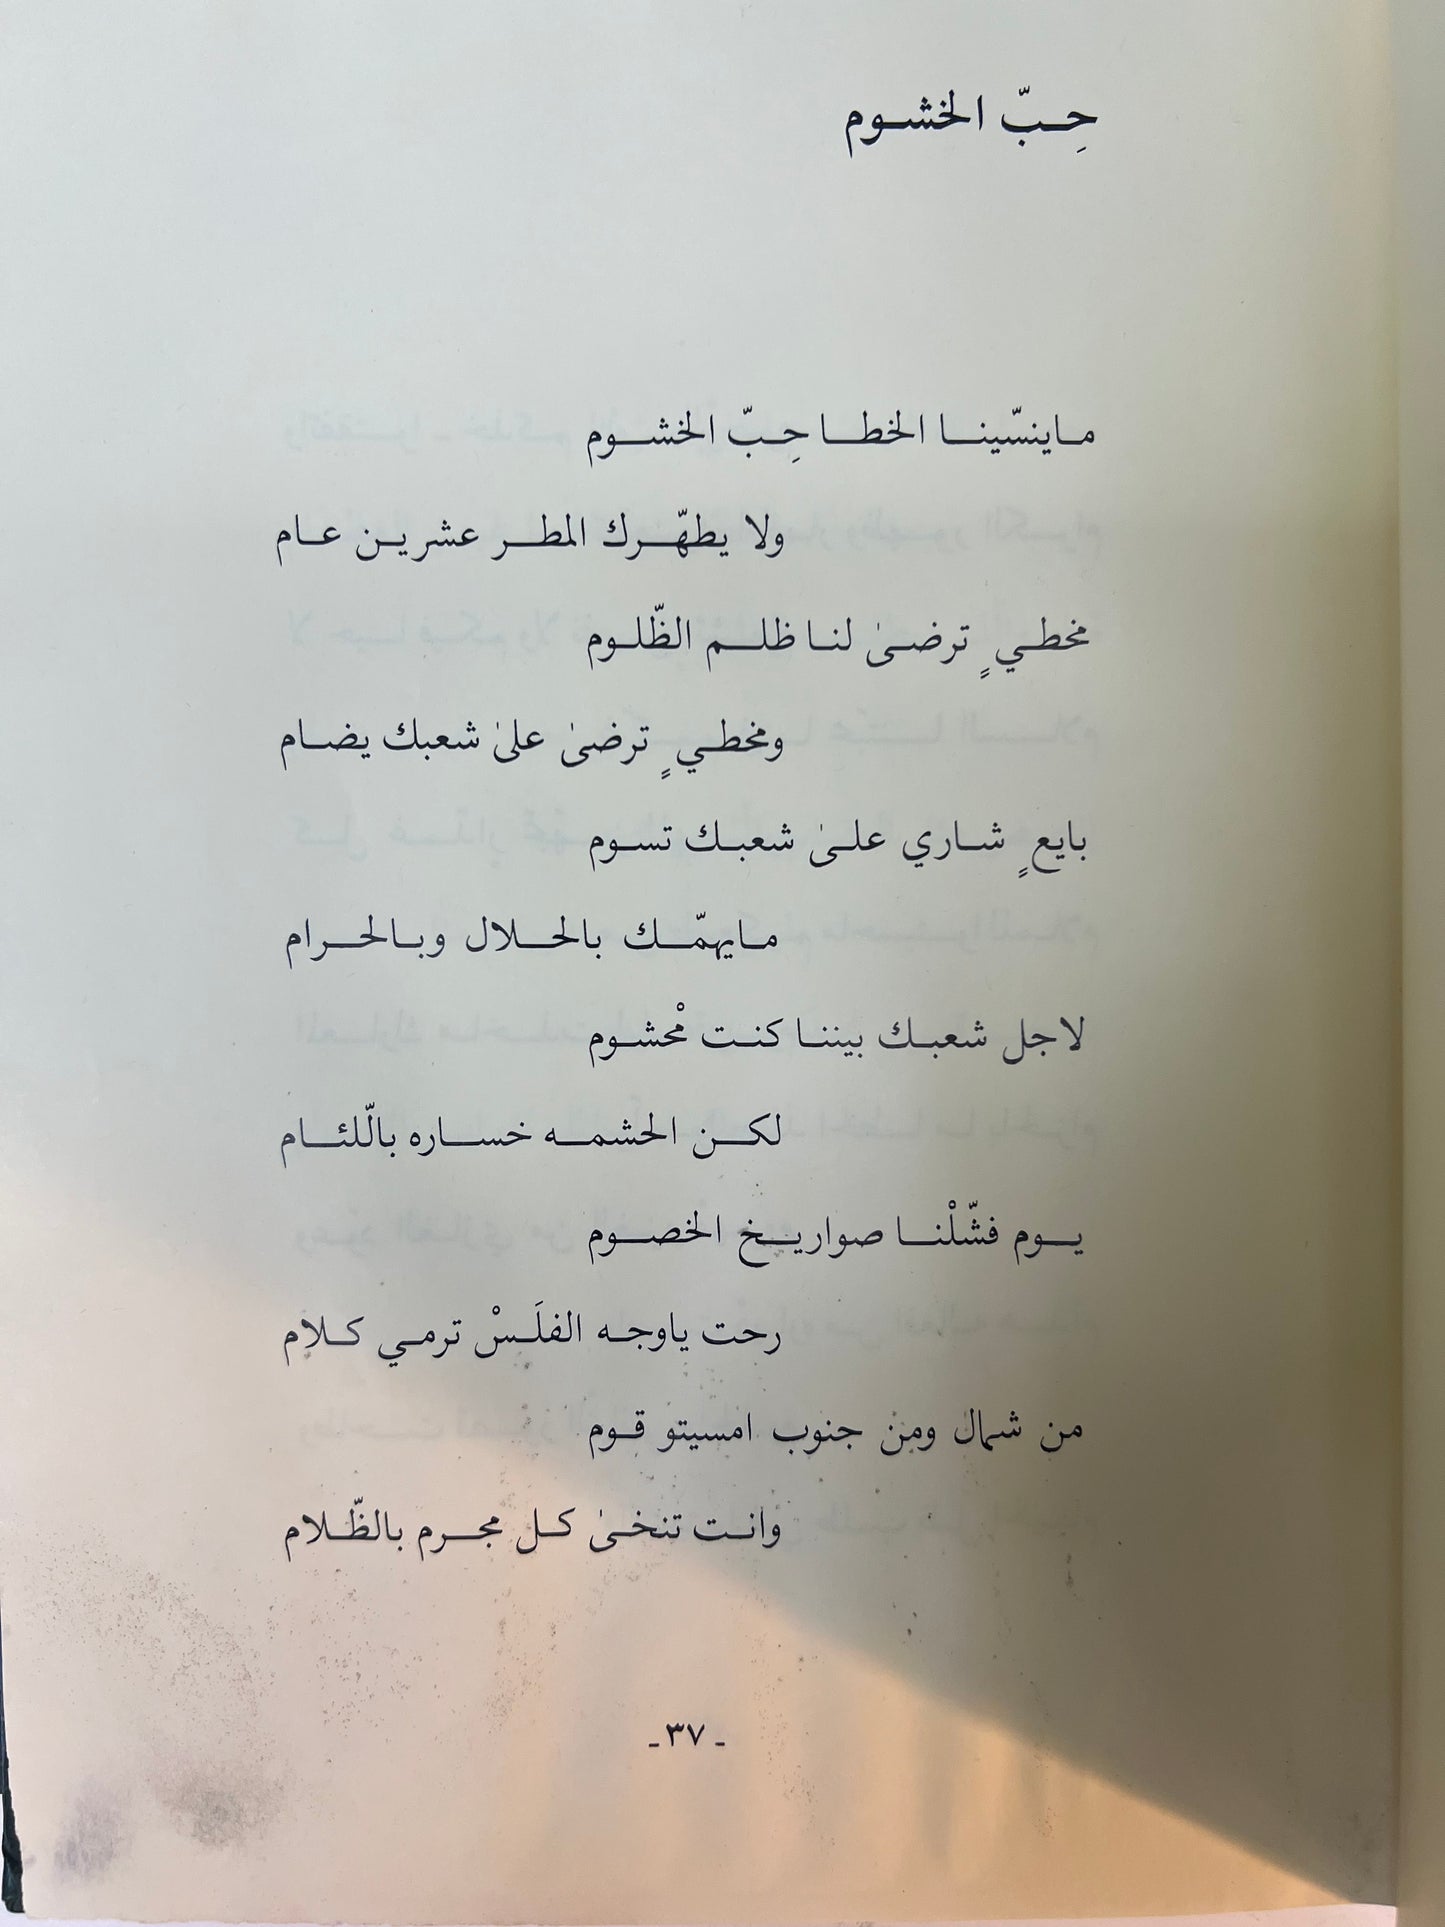 حِـبّ الخشـوم
مـاينسّينـا الخطـا حِـبّ الخشـوم
ولا يطهّـرك المطـر عشريـن عـام
مخطـيٍ ترضـىٰ لنـا ظلـم الظّلـوم
ومخطـيٍ ترضـىٰ علىٰ شعبك يضـام
بايعٍ شـاري علـىٰ شعبـك تسـوم
مـايهمّـك بالحـلال وبـالحـرام
لاجل شعبـك بيننـا كنـت مْحشـوم
لكـن الحشمـه خسـاره بالّلئـام
يـوم فشّلْنـا صواريـخ الخصـوم
رحت ياوجـه الفلَـسْ ترمـي كـلام
من شمال ومن جنوب امسيتو قـوم
وانـت تنخـىٰ كـل مجـرم بالظّـلام
ـ ٣٧ ـ